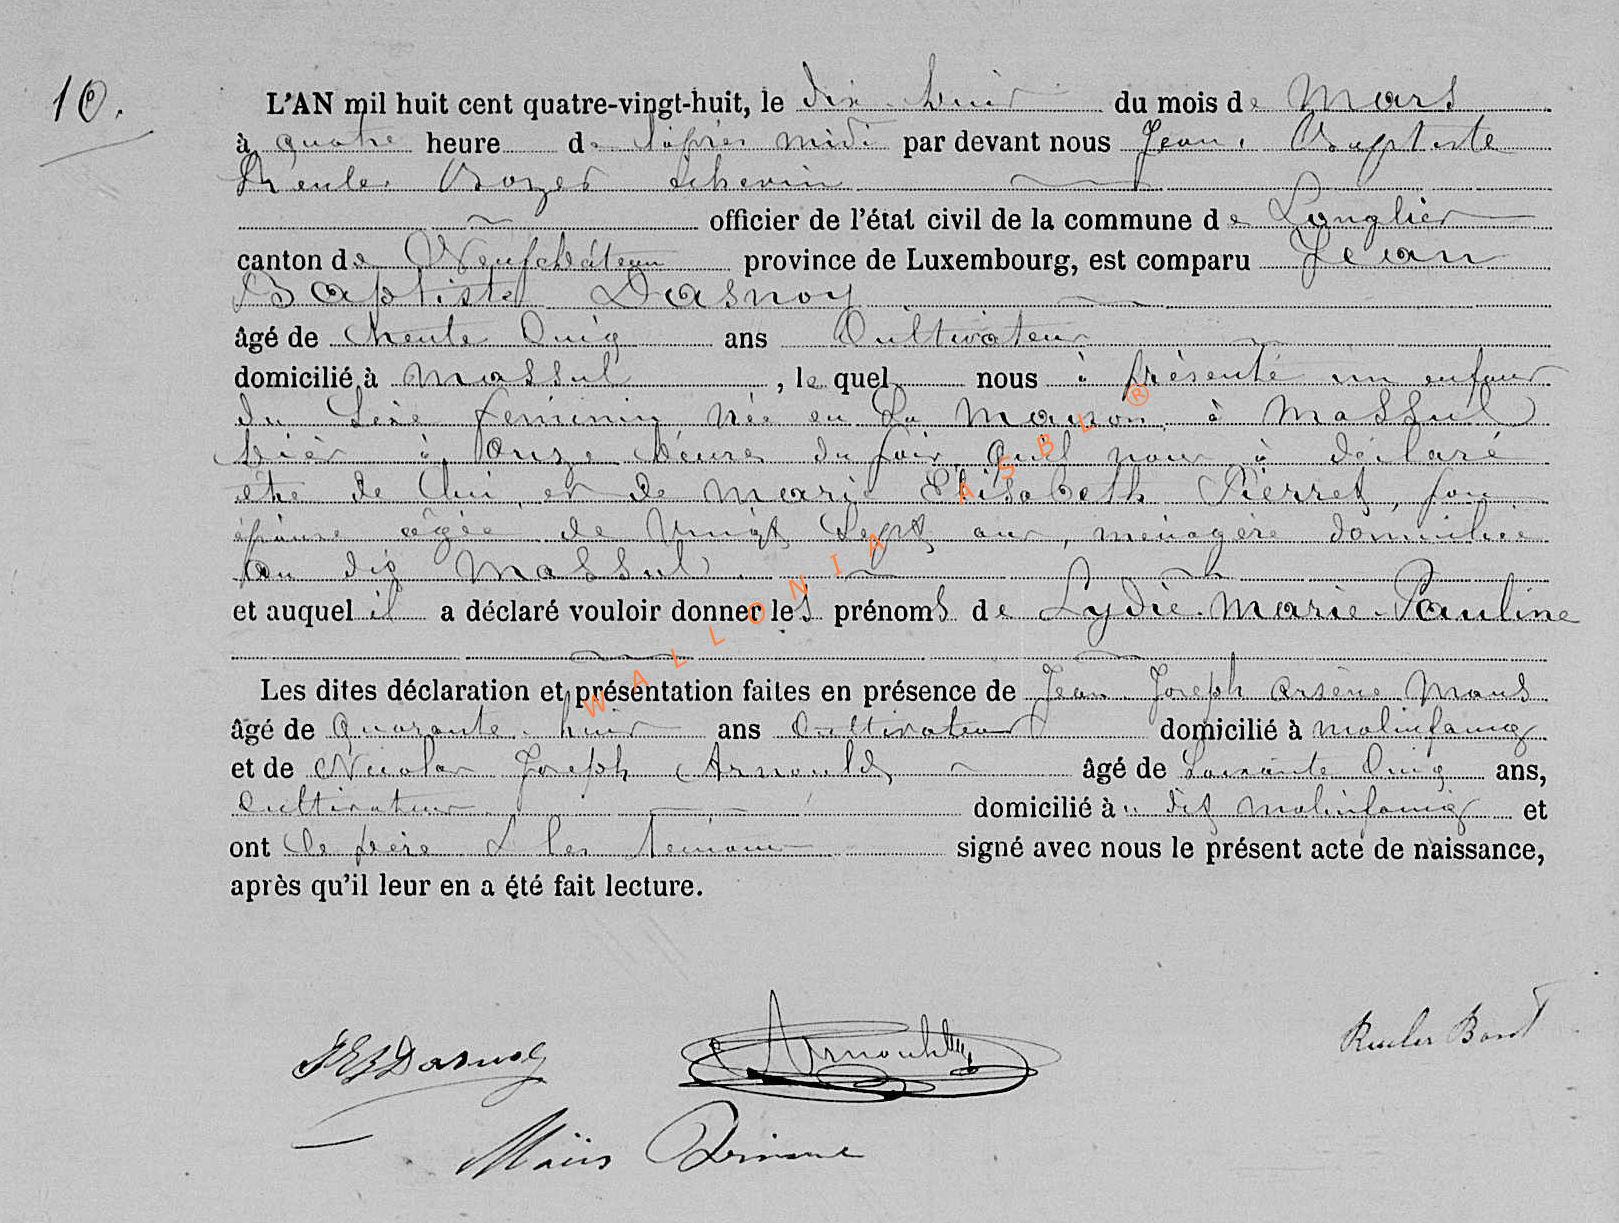 10.
L'AN mil huit cent quatre-vingt-huit, le dix-huit du mois de Mars
à quatre heure de l'après midi par devant nous Jean, Baptiste
Reuler Echevin
officier de l'état civil de la commune de Longlier
canton de Neufchâteau province de Luxembourg, est comparu Jean
Baptiste Dasnoy
âgé de trente Cinq ans Cultivateur
domicilié à Massul, le quel nous à présenté un enfant
du Sexe feminin née en Sa Maison à Massul
hièr à Onze heures du soir qu'il nous à déclaré
etre de lui et de Marie Elisabeth Pierret, son
épouse agée de Vingt Sept ans, ménagère domiciliée
au dit Massul
et auquel il a déclaré vouloir donner les prénoms de Lydie-Marie-Pauline
Les dites déclaration et présentation faites en présence de Jean Joseph Arsène Maus
âgé de Quarante-huit ans Cultivateur domicilié à Molinfaing
et de Nicolas Joseph Arnould âgé de Soixante Cinq ans,
Cultivateur domicilié àu dit Molinfaing et
ont le père & les témoins signé avec nous le présent acte de naissance,
après qu'il leur en a été fait lecture.
JB Dasnoy
Arnould
Reuler
WALLONIA ASBL ®